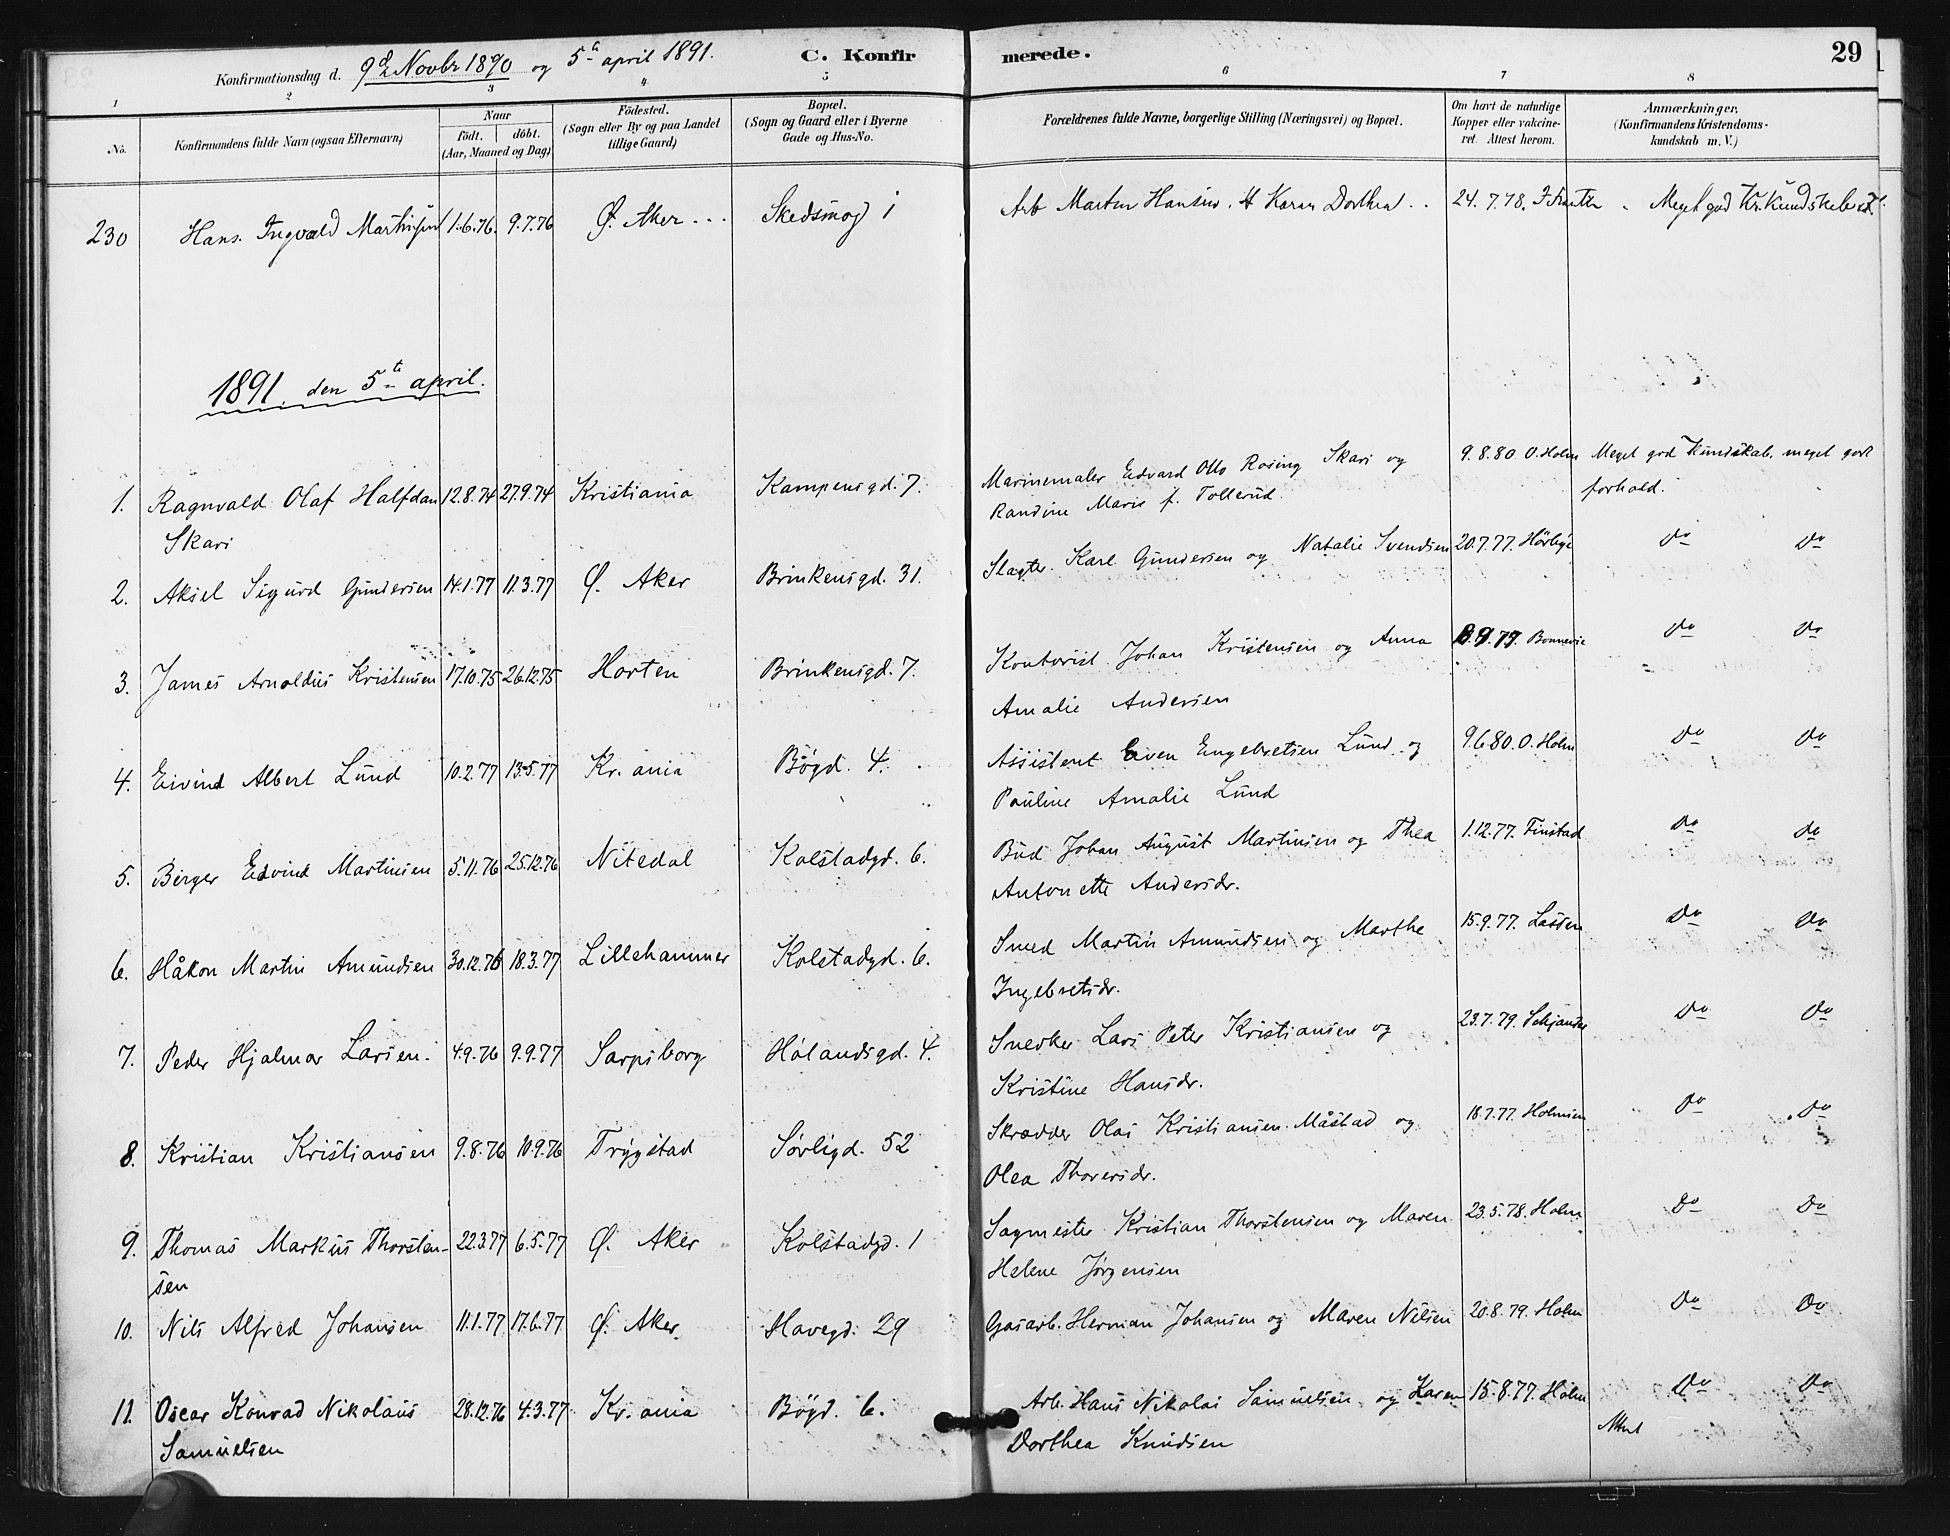 Konfirmationsdag d. 9de Novbr 1890 og 5te april 1891.
C. Konfirmerede.
29
1 2 3 4 5 6 7 8
No.
Konfirmandens fulde Navn (ogsaa Efternavn)
Naar
födt. döbt.
(Aar, Maaned og Dag)
Födested.
(Sogn eller By og paa Landet
tillige Gaard)
Bopæl.
(Sogn og Gaard eller i Byerne
Gade og Hus-No.
Forældrenes fulde Navne, borgerlige Stilling (Næringsvei) og Bopæl.
Om havt de naturlige
Kopper eller vakcine-
ret. Attest herom.
Anmærkninger.
(Konfirmandens Kristendoms-
kundskab m. V.)
230 Hans Ingvald Martinsen 1.6.76. 9.7.76 Ø. Aker Skedsmog 1 Arb Martin Hansen. H Karen Dorthea 24.7.78. Meget god Kr.Kundskab
1891. den 5te april.
1. Ragnvald Olaf Halfdan 12.8.74 27.9.74 Kristiania Kampensgd. 7. Marinemaler Edvard Otto Rosing Skari og 9.8.80 O. Holm Meget god Kundskab. meget godt
Skari Randine Marie f. Tollerud. forhold.
2. Aksel Sigurd Gundersen 14.1.77 11.3.77 Ø. Aker Brinkensgd. 31. Slagter Karl Gundersen og Natalie Svendsen 20.7.77. Hörbye do do
3. James Arnoldus Kristensen 17.10.75 26.12.75 Horten Brinkensgd. 7. Kontorist Johan Kristensen og Anna Bonnevie do do
Amalie Andersen
4. Eivind Albert Lund 10.2.77 13.5.77 Kr. ania Bøgd. 4. Assistent Even Engebretsen Lund og 9.6.80 O. Holm do do
Pauline Amalie Lund
5. Birger Edvind Martinsen 5.11.76 25.12.76 Nitedal Kolstadgd. 6. Bud Johan August Martinsen og Thea 1.12.77. Finstad do do
Antonette Andersdr.
6. Håkon Martin Amundsen 30.12.76 18.3.77 Lillehammer Kolstadgd. 6. Smed Martin Amundsen og Marthe 15.9.77. Lassen do do
Ingebretsdr.
7. Peder Hjalmar Larsen. 4.9.76 9.9.77 Sarpsborg Hølandsgd. 4. Snedker Lars Peter Kristiansen og 23.7.79. do do
Kristine Hansdr.
8. Kristian Kristiansen 9.8.76 10.9.76 Trygstad Sørligd. 52 Skrædder Olas Kristiansen Måstad og 18.7.77. Holmsen do do
Olea Thoresdr.
9. Thomas Markus Thorsten- 22.3.77 6.5.77 Ø. Aker Kolstadgd. 1 Sagmester Kristian Thorstensen og Maren 23.5.78. Holm do do
sen Helene Jørgensen
10. Nils Alfred Johansen 11.1.77 17.6.77 Ø. Aker Havegd. 29 Gasarb. Herman Johansen og Maren Nilsen 20.8.79. Holm do do
11. Oscar Konrad Nikolaus 28.12.76 4.3.77 Kr. ania Bøgd. 6. Arb. Hans Nikolai Samuelsen og Karen 15.8.77. Holm do do
Samuelsen Dorthea Knudsen